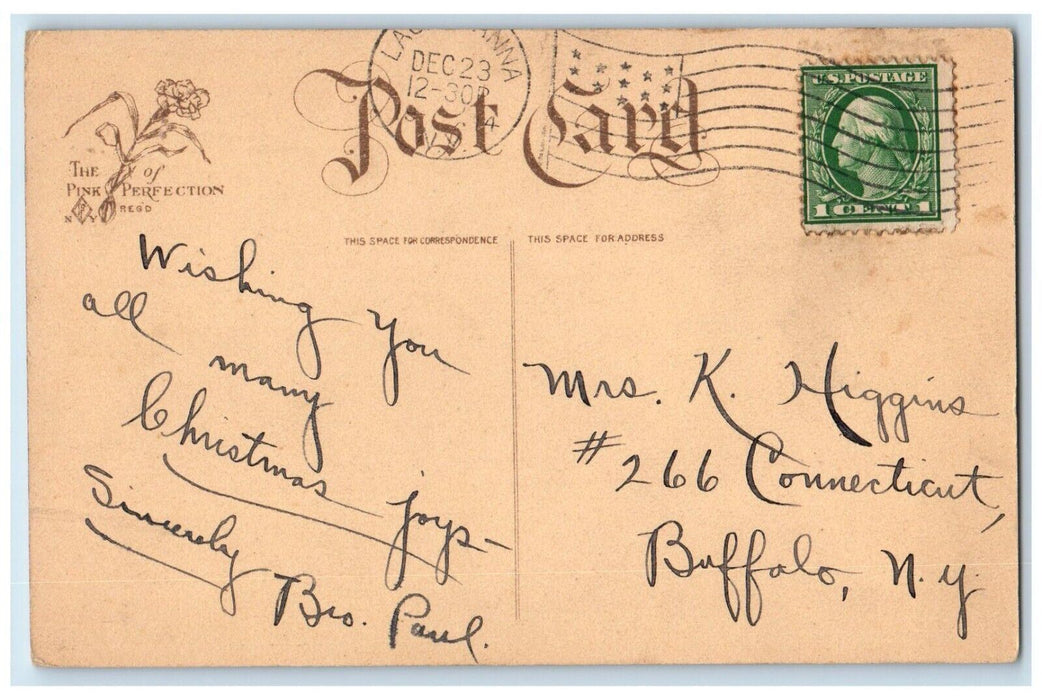 THE of
PINK PERFECTION
REG'D
N Y
Post Card
DEC 23
12-30P
U.S. POSTAGE
1 CENT 1
THIS SPACE FOR CORRESPONDENCE
THIS SPACE FOR ADDRESS
Wishing you
all many
Christmas joys-
Sincerely
Bro. Paul.
Mrs. K. Higgins
# 266 Connecticut,
Buffalo, N.Y.